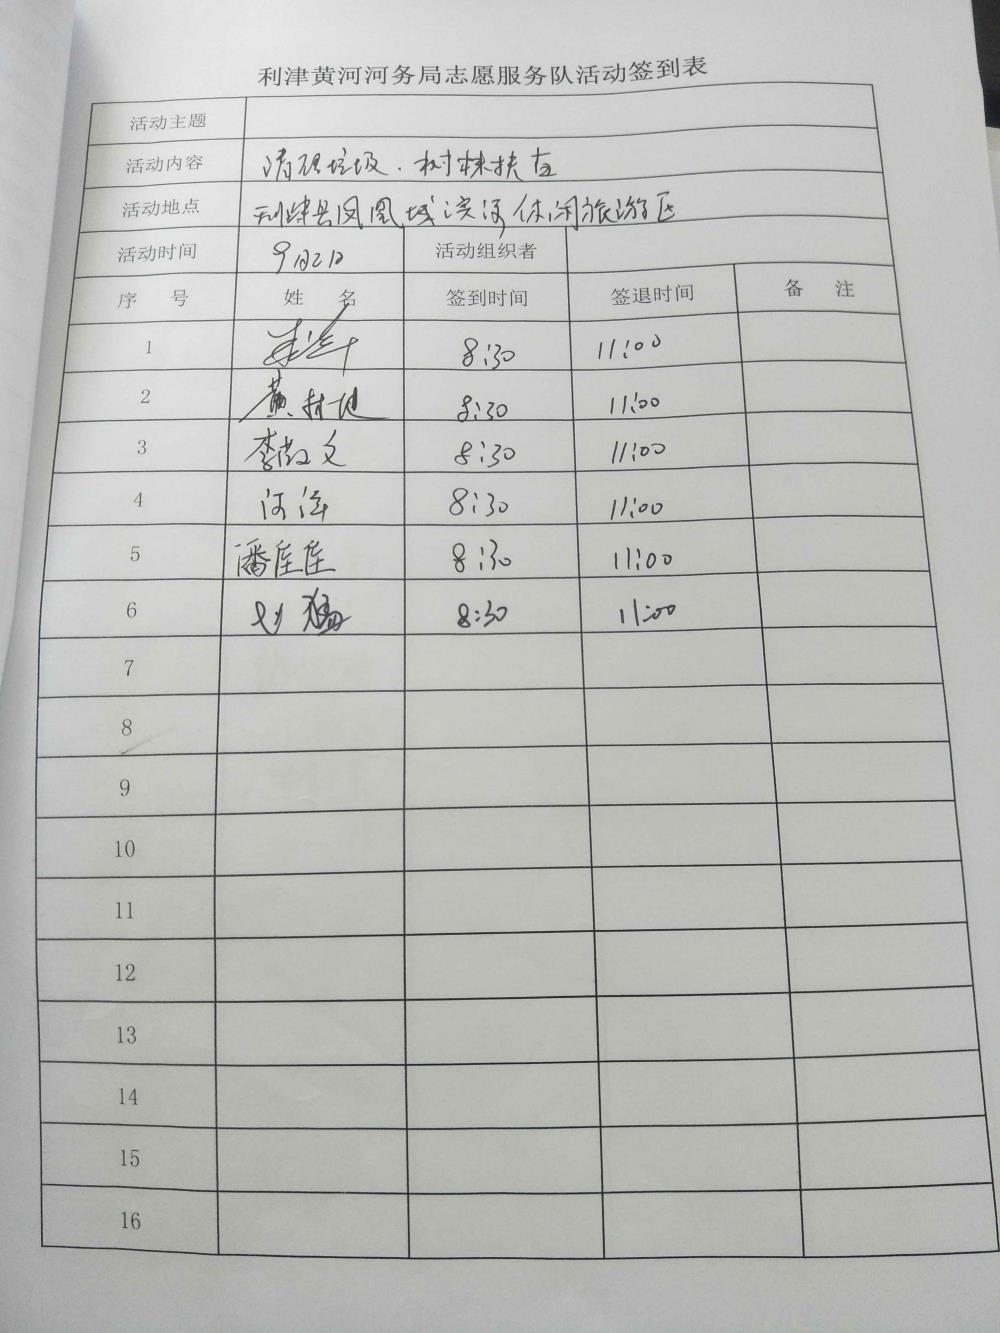 利津黄河河务局志愿服务队活动签到表
活动主题
活动内容 清理垃圾.树株扶直
活动地点 利津县凤凰城滨河休闲旅游区
活动时间 9月2日 活动组织者
序 号 姓 名 签到时间 签退时间 备 注
1 8:30 11:00
2 黄 8:30 11:00
3 李 文 8:30 11:00
4 8:30 11:00
5 潘 8:30 11:00
6 刘猛 8:30 11:00
7
8
9
10
11
12
13
14
15
16